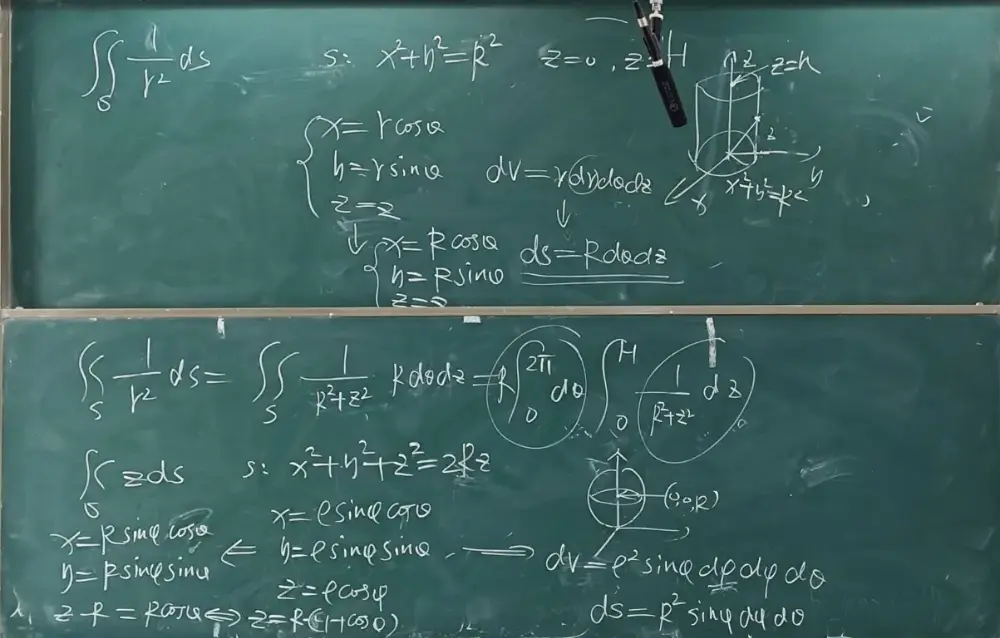 ∬_S 1/r² ds    S: x²+y²=R²    z=0, z=H
z    z=h
x=rcosθ
y=rsinθ    dV=rdrdθdz
z=z
z    y    x    x²+y²=R²
x=Rcosθ    ds=Rdθdz
y=Rsinθ
∬_S 1/r² ds = ∬_S 1/(R²+z²) Rdθdz = R∫_0^{2π} dθ ∫_0^H 1/(R²+z²) dz
∬ zds    S: x²+y²+z²=2Rz
(0,0,R)
x=Rsinφcosθ ⇐ x=ρsinφcosθ
y=Rsinφsinθ    y=ρsinφsinθ ⟹ dV=ρ²sinφdρdφdθ
z-R=Rcosθ ⇔ z=R(1+cosθ)    z=ρcosφ    ds=R²sinφdφdθ